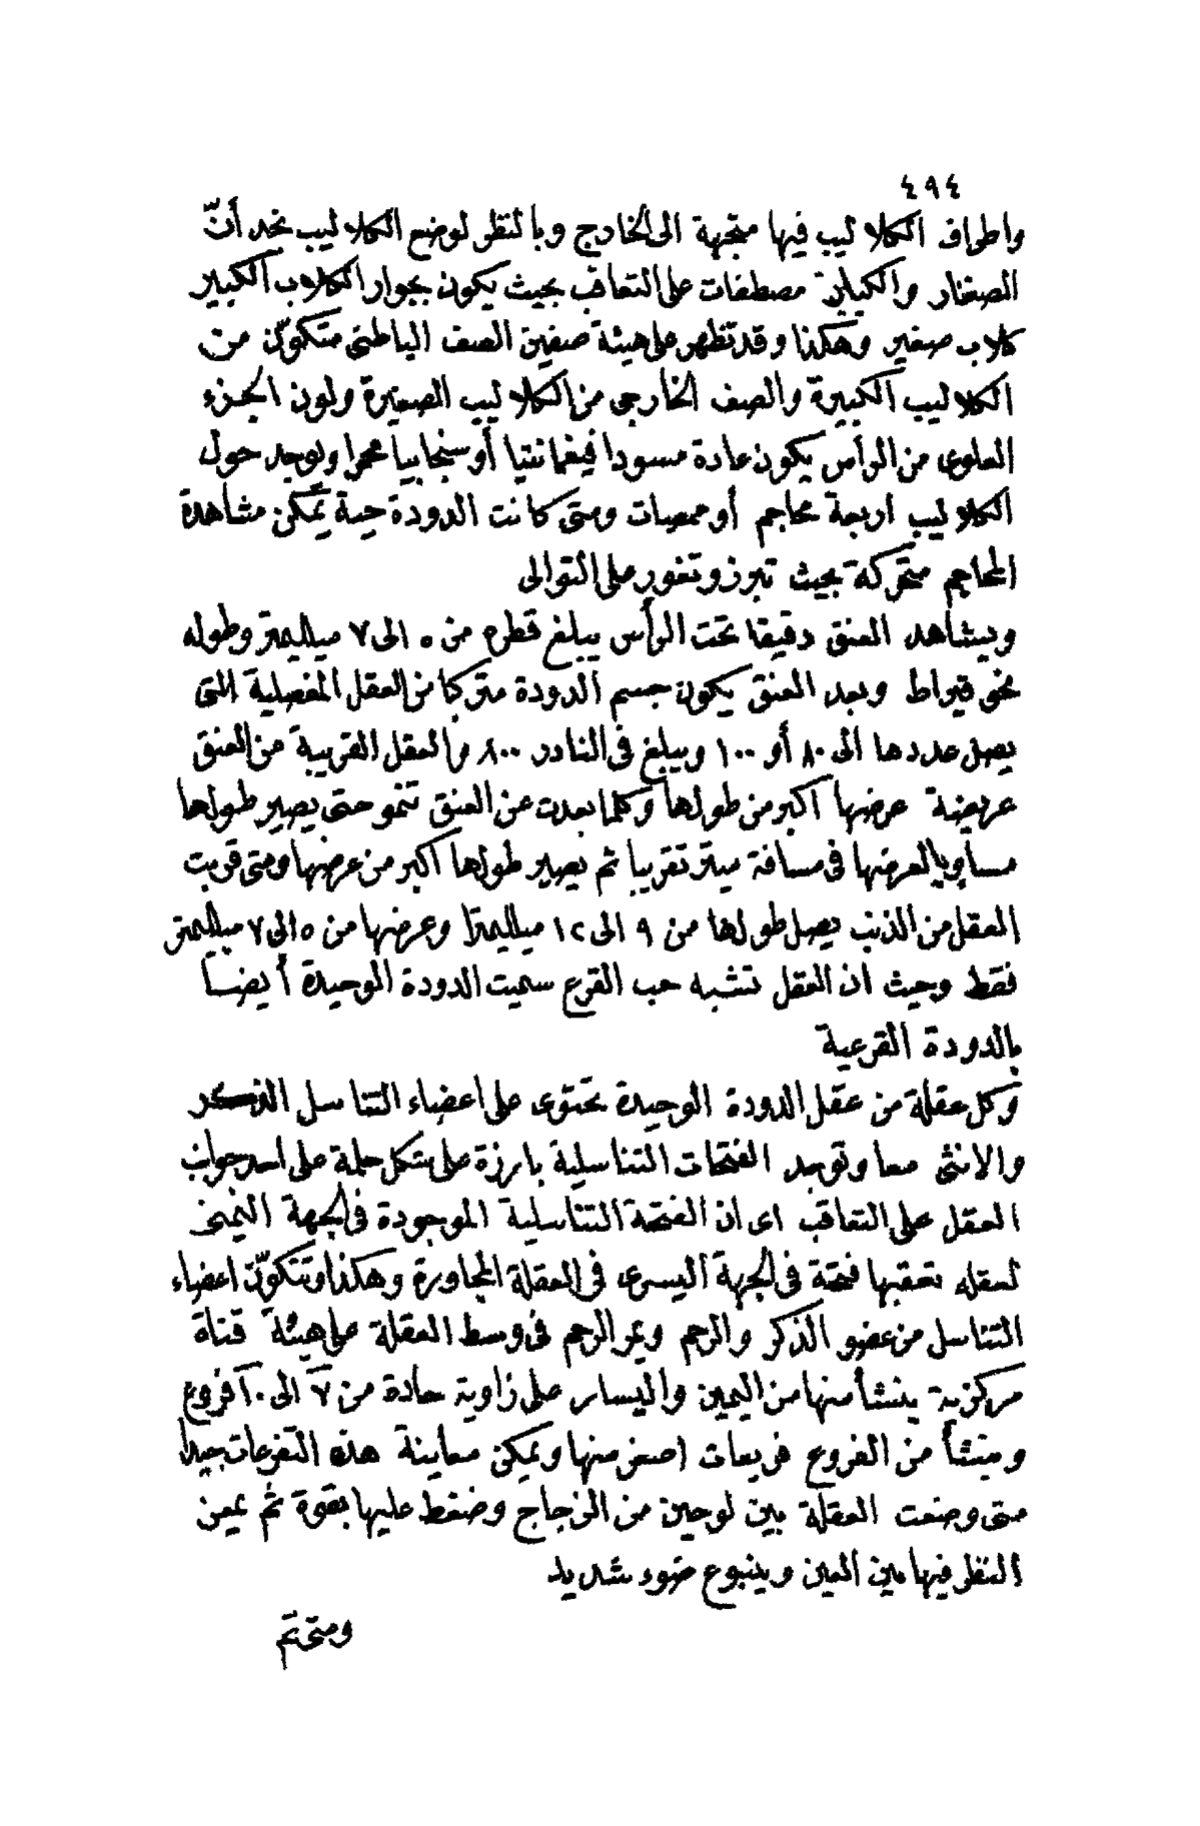 ٤٩٤
واطراف الكلاليب فيها متجهة الى الخارج وبالنظر لوضع الكلاليب نجد أنّ
الصغار والكبار مصطفات على التعاقب بحيث يكون بجوار الكلاب الكبير
كلاب صغير وهكذا وقد تظهر على هيئة صفين الصف الباطنى متكوّن من
الكلاليب الكبيرة والصف الخارجى من الكلاليب الصغيرة ولون الجزء
العلوى من الرأس يكون عادة مسودا فيغمانتيا أو سنجابيا محمرا ويوجد حول
الكلاليب اربعة محاجم أو ممصات ومتى كانت الدودة حية يمكن مشاهدة
المحاجم متحركة بحيث تبرز وتغور على التوالى
ويشاهد العنق دقيقا تحت الرأس يبلغ قطره من ٥ الى ٧ ميلليمتر وطوله
نحو قيراط وبعد العنق يكون جسم الدودة متركبا من العقل المفصلية التى
يصل عددها الى ٨٠ أو ١٠٠ ويبلغ فى النادر ٨٠٠ والعقل القريبة من العنق
عريضة عرضها اكبر من طولها وكلما بعدت عن العنق تنمو حتى يصير طولها
مساويا لعرضها فى مسافة ميتر تقريبا ثم يصير طولها اكبر من عرضها ومتى قربت
العقل من الذنب يصل طولها من ٩ الى ١٢ ميلليمترا وعرضها من ٥ الى ٧ ميلليمتر
فقط وحيث ان العقل تشبه حب القرع سميت الدودة الوحيدة أيضا
بالدودة القرعية
وكل عقلة من عقل الدودة الوحيدة تحتوى على اعضاء التناسل الذكر
والانثى معا وتوجد الفتحات التناسلية بارزة على شكل حلمة على احد جوانب
العقل على التعاقب اى ان الفتحة التناسلية الموجودة فى الجهة اليمنى
لعقله تعقبها فتحة فى الجهة اليسرى فى العقلة المجاورة وهكذا وتتكوّن اعضاء
التناسل من عضو الذكر والرحم ويمر الرحم فى وسط العقلة على هيئة قناة
مركزية ينشأ منها من اليمين واليسار على زاوية حادة من ٧ الى ١٠ فروع
وينشأ من الفروع فريعات اصغر منها ويمكن معاينة هذه التفرعات جيدا
متى وضعت العقلة بين لوحين من الزجاج وضغط عليها بقوة ثم يمعن
النظر فيها بين العين وينبوع ضوء شديد
ومتى تم